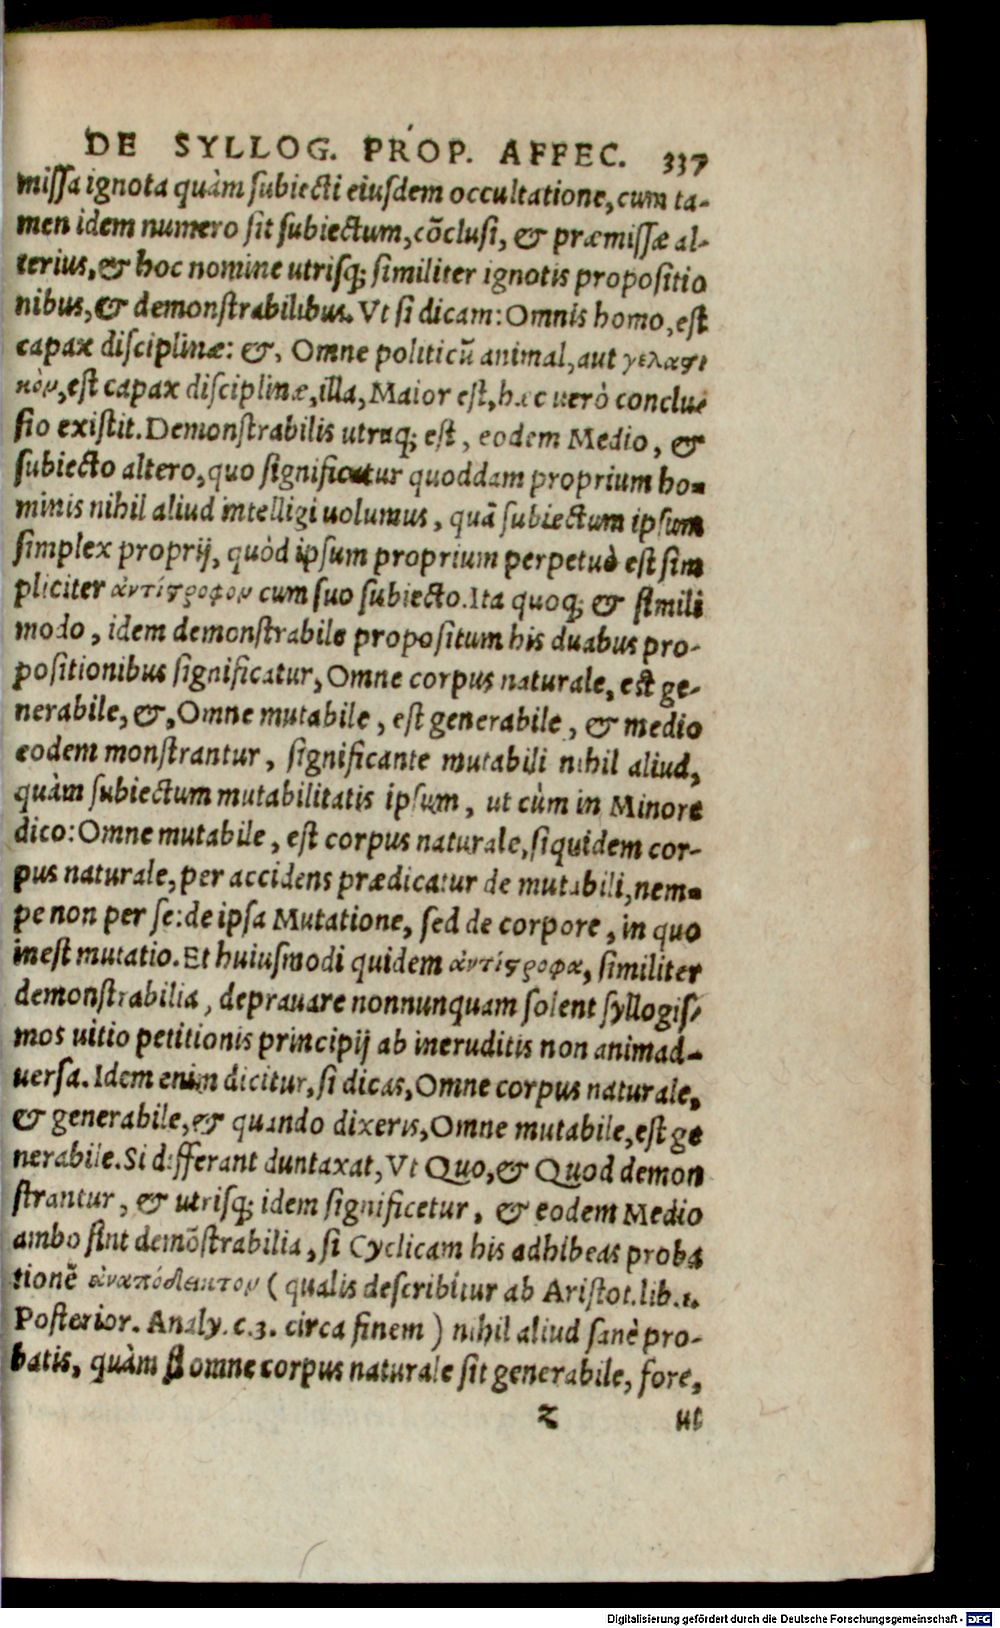 DE SYLLOG. PROP. AFFEC. 337
missa ignota quàm subiecti eiusdem occultatione, cum ta-
men idem numero sit subiectum, cōclusi, & præmissæ al-
terius, & hoc nomine utrisq; similiter ignotis propositio
nibus, & demonstrabilibus. Vt si dicam: Omnis homo, est
capax disciplinæ: &, Omne politicū animal, aut γελαστι
κὸν, est capax disciplinæ, illa, Maior est, hæc uerò conclu-
sio existit. Demonstrabilis utraq; est, eodem Medio, &
subiecto altero, quo significatur quoddam proprium ho-
minis nihil aliud intelligi uolumus, quā subiectum ipsum
simplex proprij, quòd ipsum proprium perpetuò est sim
pliciter ἀντίστροφον cum suo subiecto. Ita quoq; & simili
modo, idem demonstrabile propositum his duabus pro-
positionibus significatur, Omne corpus naturale, est ge-
nerabile, &, Omne mutabile, est generabile, & medio
eodem monstrantur, significante mutabili nihil aliud,
quàm subiectum mutabilitatis ipsum, ut cùm in Minore
dico: Omne mutabile, est corpus naturale, siquidem cor-
pus naturale, per accidens prædicatur de mutabili, nem-
pe non per se: de ipsa Mutatione, sed de corpore, in quo
inest mutatio. Et huiusmodi quidem ἀντίστροφα, similiter
demonstrabilia, deprauare nonnunquam solent syllogis-
mos uitio petitionis principij ab ineruditis non animad-
uersa. Idem enim dicitur, si dicas, Omne corpus naturale,
& generabile, & quando dixeris, Omne mutabile, est ge
nerabile. Si differant duntaxat, Vt Quo, & Quod demon
strantur, & utrisq; idem significetur, & eodem Medio
ambo sint demōstrabilia, si Cyclicam his adhibeas proba
tionē ἀναπόδεικτον (qualis describitur ab Aristot. lib. 1.
Posterior. Analy. c. 3. circa finem) nihil aliud sanè pro-
batis, quàm si omne corpus naturale sit generabile, fore,
z ut
Digitalisierung gefördert durch die Deutsche Forschungsgemeinschaft - DFG